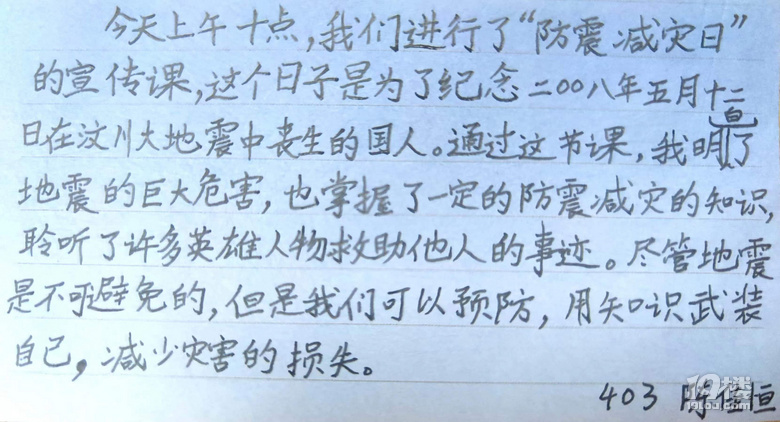 今天上午十点,我们进行了“防震减灾日”
的宣传课,这个日子是为了纪念二〇〇八年五月十二
日在汶川大地震中丧生的国人。通过这节课,我明白了
地震的巨大危害,也掌握了一定的防震减灾的知识,
聆听了许多英雄人物救助他人的事迹。尽管地震
是不可避免的,但是我们可以预防,用知识武装
自己,减少灾害的损失。
403 陈佳恒
19楼
19lou.com